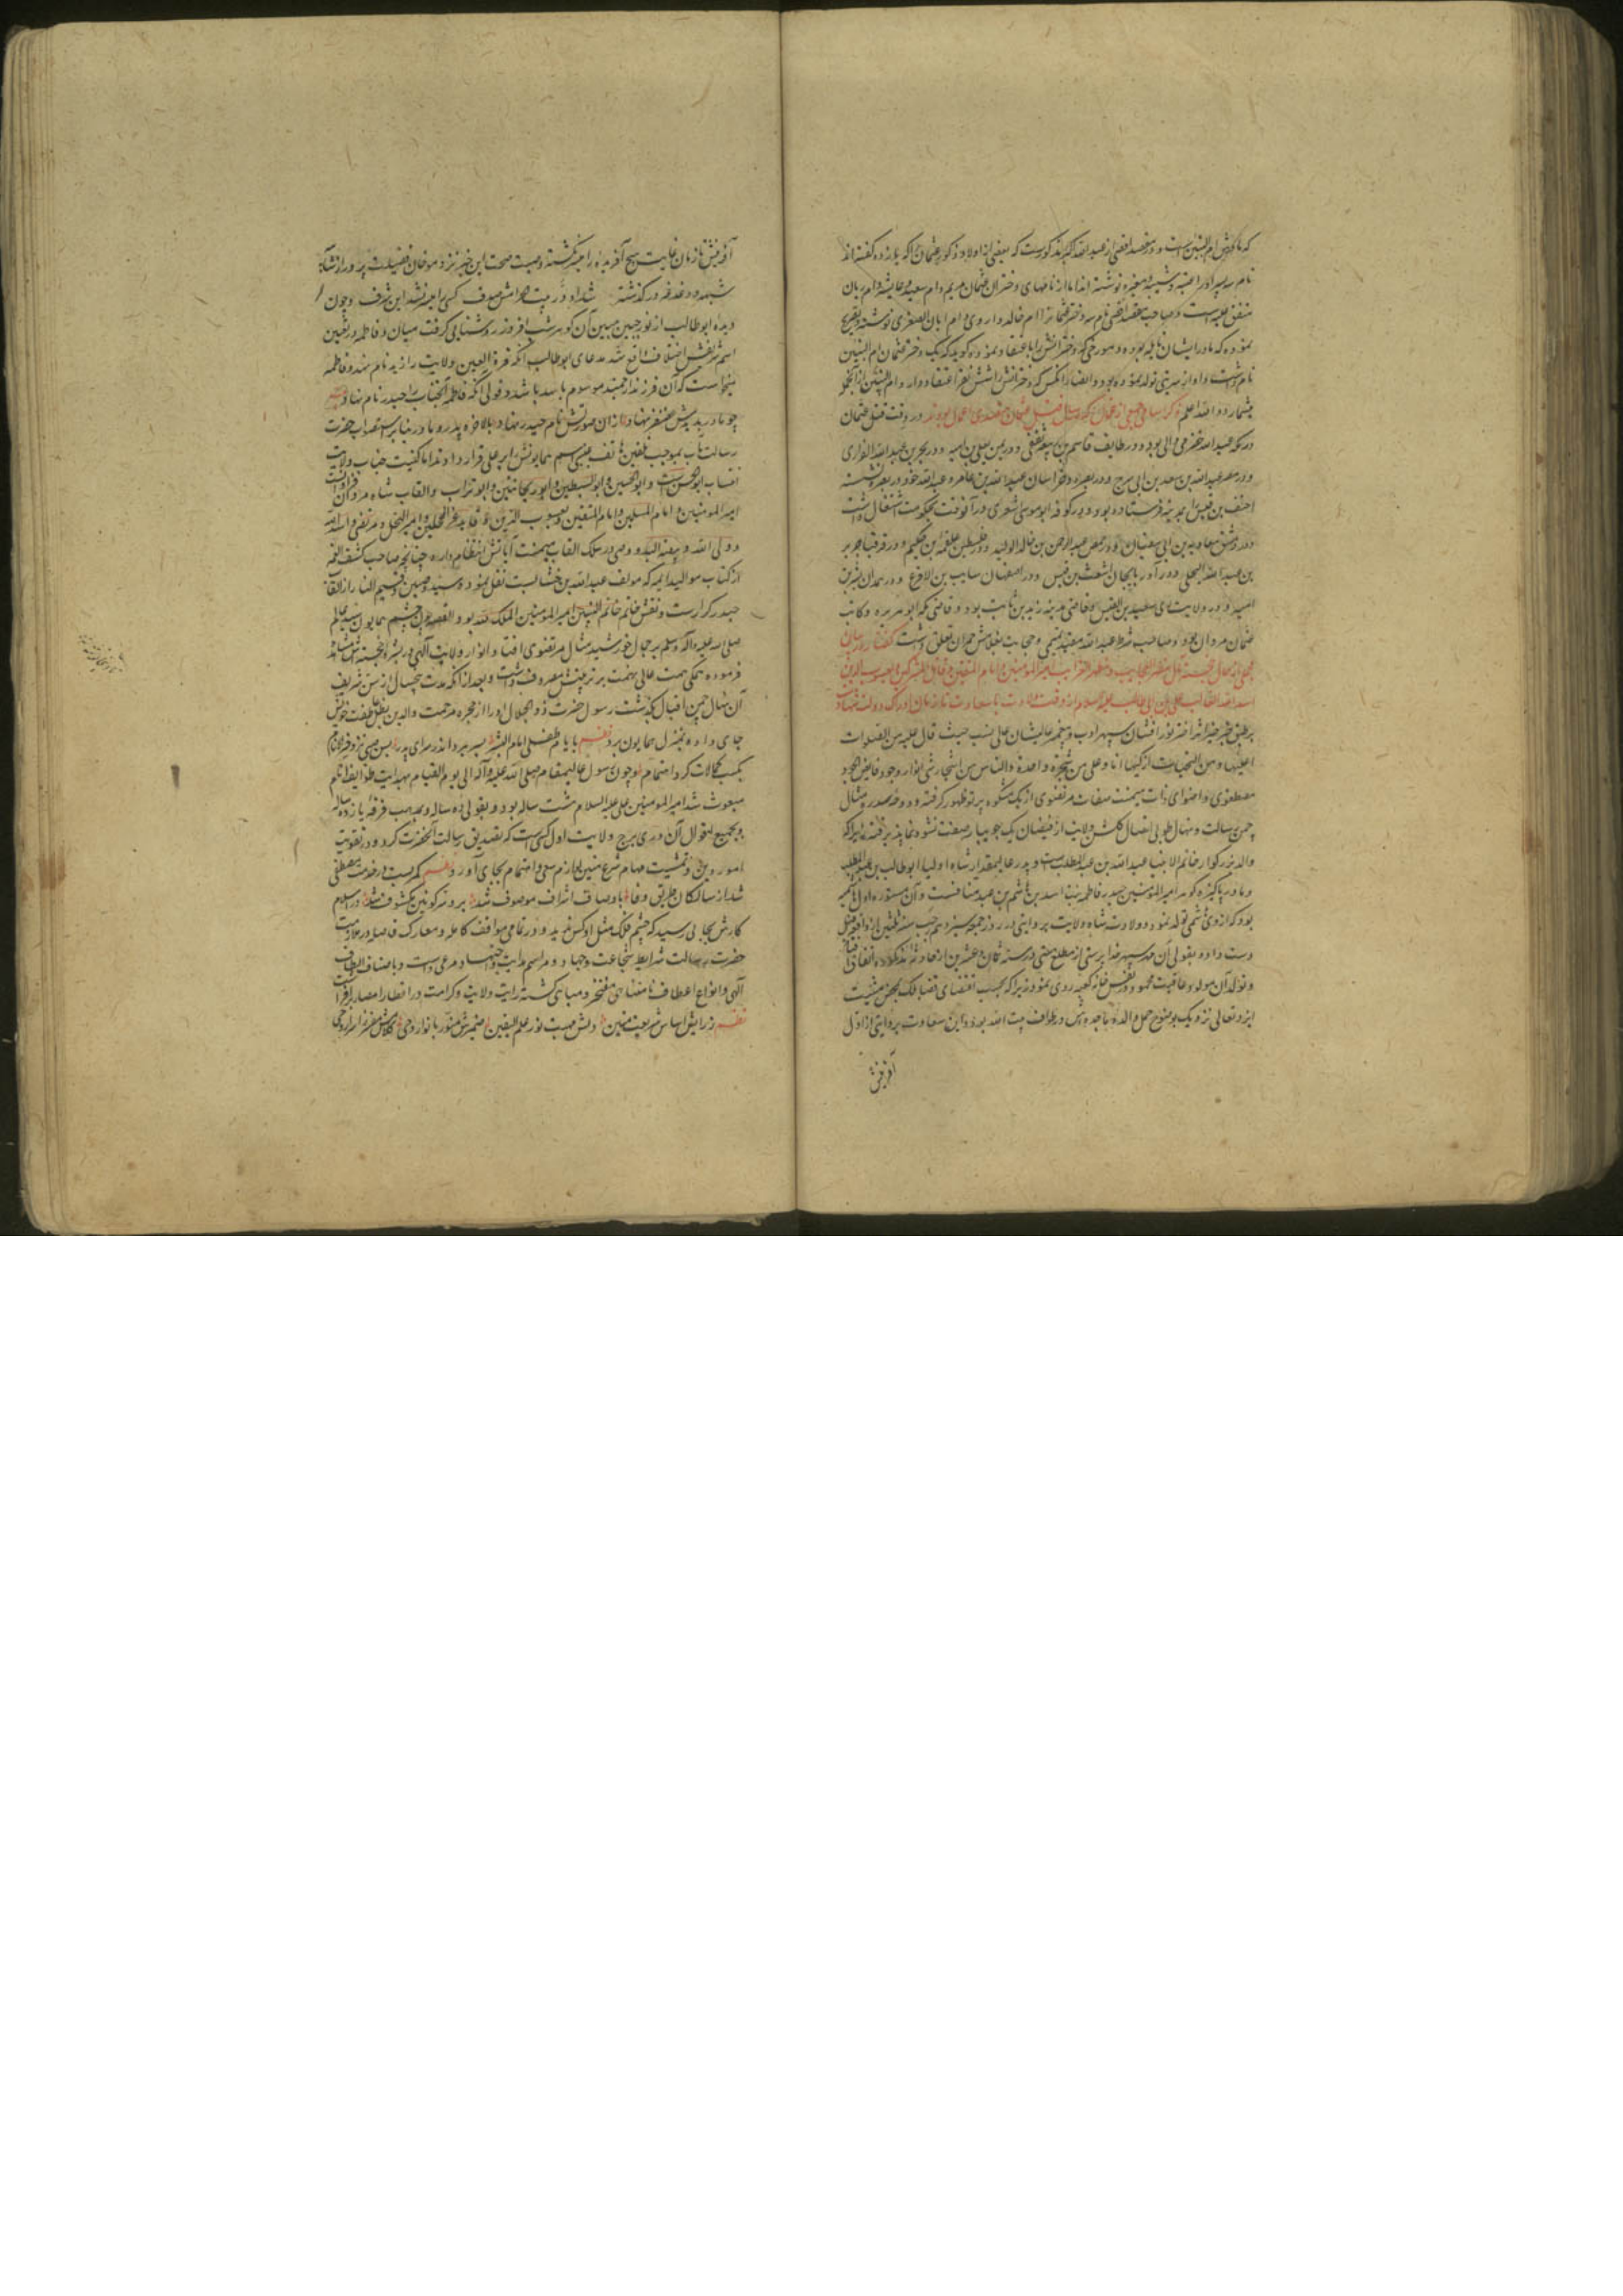 که مادرش ام البنین است و در مقصد اقصی از عبد الله اکبر مذکورست که بعضی از اولاد ذکور عثمان را که یازده گفته اند
نام سه پسر او را عتبه و شیبه و مغیره نوشته اند اما از نامهای دختران عثمان مریم و ام سعید و عایشه و ام ابان
متفق علیه است و صاحب مقصد اقصی نام سه دختر عثمان را ام خالد و اروی و ام ابان الصغری نوشته و تصریح
نموده که مادر ایشان نایله بوده و مورخی که دخترانش را اعتقاد نموده گوید که یک دختر عثمان ام البنین
نام داشت و او از سریتی تولد نموده بود و ایضا آنکس که دخترانش را شش نفر اعتقاد دارد ام البنین را از آنجمله
میشمارد و الله اعلم ذکر اسامی جمعی از عمال که در سال قتل عثمان متصدی اعمال بودند در وقت قتل عثمان
در مکه عبد الله حضرمی والی بود و در طایف قاسم بن ربیعه ثقفی و در یمن یعلی بن امیه و در بحرین عبد الله الفزاری
و در مصر عبد الله بن سعد بن ابی سرح و در بصره و خراسان عبد الله بن عامر و عبد الله خود در بصره نشسته
احنف بن قیس را بمدینه فرستاده بود و در کوفه ابو موسی اشعری در آنوقت بحکومت اشتغال داشت
و در دمشق معاویه بن ابی سفیان و در حمص عبد الرحمن بن خالد الولید و در فلسطین علقمه بن حکیم و در قرقیا جریر
بن عبد الله البجلی و در آذربایجان اشعث بن قیس و در اصفهان سایب بن الاقرع و در همدان بشر بن
امیه و در ولایت ری سعید بن القیس و قاضی مدینه زید بن ثابت بود و قاضی مکه ابو هریره و کاتب
عثمان مروان بود و صاحب شرط عبد الله منقذ تیمی و حجابت بغلامش حمران تعلق داشت گفتار در بیان
مجملی از حال خجسته مآل مظهر العجایب و مظهر الغرایب امیر المؤمنین و امام المتقین و قاتل المشرکین و یعسوب الدین
اسد الله الغالب علی بن ابی طالب علیه السلام از وقت ولادت با سعادت تا زمان ادراک دولت شهادت
برطبق خبر خیر اثر اختر نور افشان سپهر ادب و پیغمبر عالیشان علی نسب حیث قال علیه من الصلوات
اعلیها و من التحیات ازکیها انا و علی من شجرة واحدة والناس من اشجار شتی انوار وجود فایض الجود
مصطفوی و اضوای ذات میمنت صفات مرتضوی از یک مشکوه پرتو ظهور گرفته و دوحه صدر مثال
چمن رسالت و نهال طوبی اتصال گلشن ولایت از فیضان یک جویبار صفت نشو و نما پذیرفته زیرا که
والد بزرگوار خاتم الانبیا عبد الله بن عبد المطلب است و پدر عالیمقدار شاه اولیا ابو طالب بن عبد المطلب
و مادر پاکیزه گوهر امیر المؤمنین حیدر فاطمه بنت اسد بن هاشم بن عبد منافست و آن مستوره اول هاشمیه
بود که از وی هاشمی تولد نمود و ولادت شاه ولایت بروایتی در روز جمعه سیزدهم رجب سنه ثلثین از واقعه فیل
دست داد و بقولی آن خورشید خدا پرستی از مطلع هستی در سنه ثمان و عشرین از حادثه مذکوره اتفاق افتاد
و تولد آن مولود عاقبت محمود در نفس خانه کعبه روی نمود زیرا که بحسب اقتضای قضا فلک بمحض مشیت
ایزد تعالی نزدیک بوضع حمل والده ماجده اش در طواف بیت الله بود و این سعادت بروایتی از اول
آفرینش
آفرینش تا زمان غایت هیچ آفریده را میسر نگشته و صیت صحت این خبر نزد مورخان فضیلت پرور از شایبه
شبهه و دغدغه درگذشته شد او در بیت حرامش صدف کسی را میسر نشد این شرف و چون
دیده ابو طالب از نور جبین مبین آن گوهر شب افروز روشنایی گرفت میان او و فاطمه در تعیین
اسم شریفش اختلاف واقع شد مدعای ابو طالب آنکه قرة العین ولایت را زید نام نهد و فاطمه
میخواست که آن فرزند ارجمند موسوم باسد باشد و قولی آنکه فاطمه آنجناب را حیدر نام نهاد
چو مادر پدرش غضنفر نهاد از ان صورتش نام حیدر نهاد بالاخره پدر و مادر بنابر استصواب حضرت
رسالت مآب بموجب تلقین هاتف غیبی اسم همایونش را بر علی قرار دادند اما کنیت جناب ولایت
انتساب ابو الحسن است و ابو الحسین و ابو السبطین و ابو ریحانتین و ابو تراب و القاب شاه مردان
امیر المومنین و امام المسلمین و امام المتقین و یعسوب الدین و قاید الغر المحجلین و امیر النحل و مرتضی و اسد الله
و ولی الله و بیضة البلد و وصی در سلک القاب میمنت آیاتش انتظام دارد چنانچه صاحب کشف الغمه
از کتاب موالید ائمه که مولف عبد الله بن خشابست نقل نمود و سید وصیین و قسیم النار از القاب
حیدر کرارست و نقش خاتم خاتم النبیین امیر المومنین الملک لله بود القصه چون چشم همایون سید عالم
صلی الله علیه و آله وسلم بر جمال خورشید مثال مرتضوی افتاد و انوار ولایت الهی در بشره خجسته اش مشاهده
فرموده همگی همت عالی نهمت بر تربیتش مصروف داشت و بعد از آنکه مدت پنجسال از سن شریف
آن نهال چمن اقبال بگذشت رسول حضرت ذو الجلال او را از حجره مرحمت والدین بظل عاطفت خویش
جای داده بمنزل همایون برد بایام طفلی امام البشر بسر برد اندر سرای پدر پس نزد خیر الانام
بکسب کمالات کرد اهتمام و چون رسول عالیمقام صلی الله علیه و آله الی یوم القیام بهدایت طوایف انام
مبعوث شد امیر المومنین علی علیه السلام هشت ساله بود و بقولی ده ساله و بمذهب فرقه یازده ساله
و بجمیع اقوال آن دری برج ولایت اول کسی است که تصدیق رسالت آنحضرت کرد و در تقویت
امور دین و تمشیت مهام شرع متین لوازم سعی و اهتمام بجای آورد کمر بست در خدمت مصطفی
شد از سالکان طریق وفا باوصاف اشراف موصوف شد برو سر کونین مکشوف شد در اسلام
کارش بجایی رسید که چشم فلک مثل او کس ندید و در تمامی مواقف کامله و معارک فاصله در ملازمت
حضرت رسالت شرایط شجاعت و جهاد و مراسم هدایت و اجتهاد مرعی داشت و باصناف الطاف
الهی و انواع اعطاف نامتناهی مفتخر و مباهی گشته رایت ولایت و کرامت در اقطار امصار برافراشت
نظم ز رایش اساس شریعت متین دلش مهبط نور علم الیقین ضمیرش منور بانوار وحی کلامش مفسر ز اسرار وحی